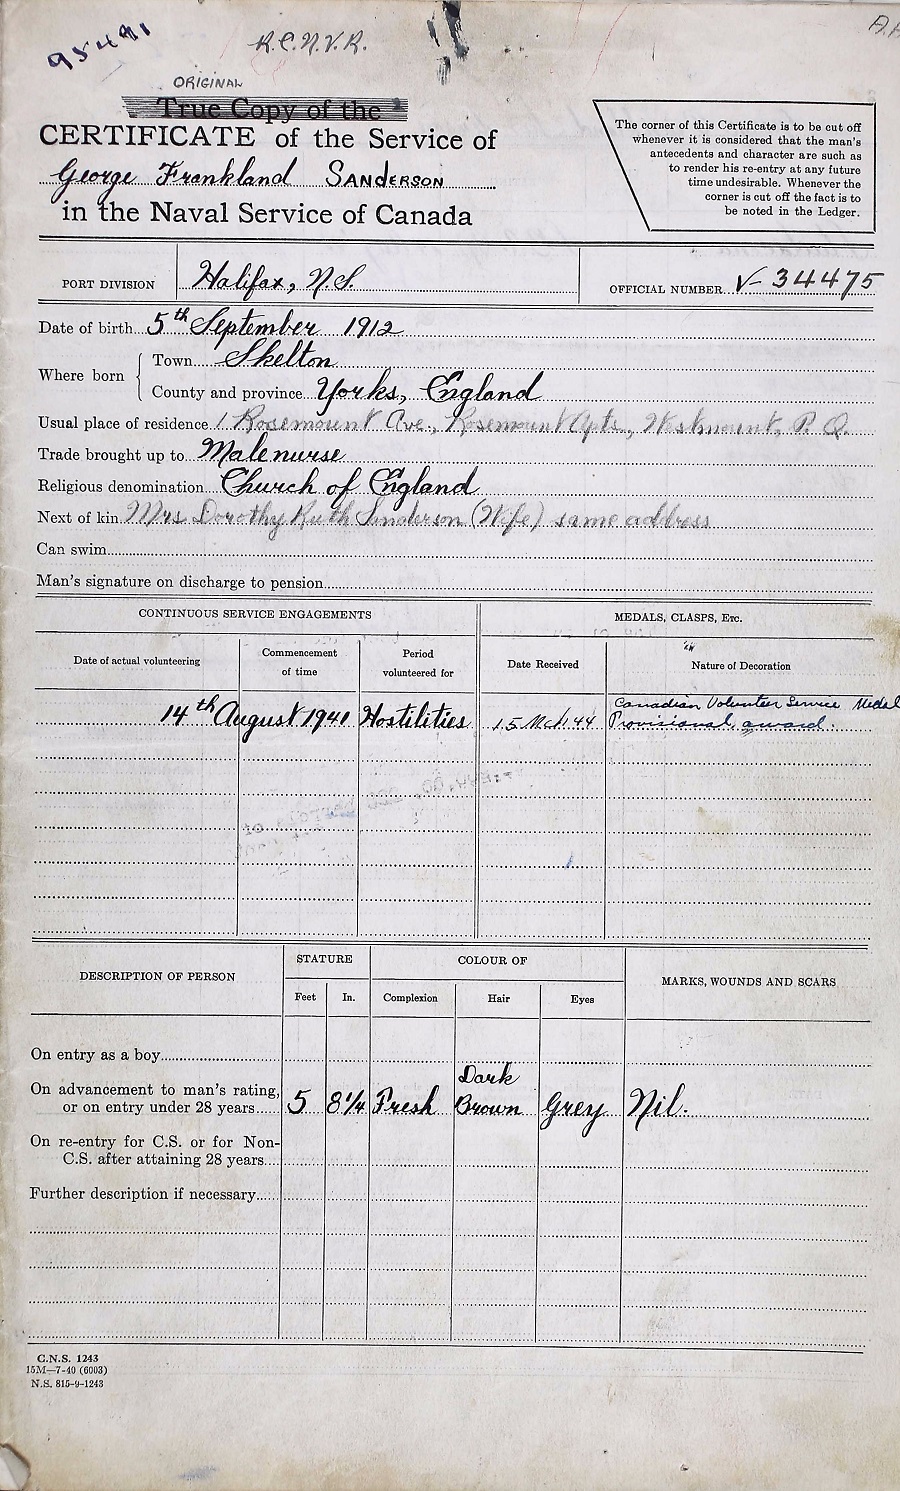 95491
R.C.N.V.R.
A.
ORIGINAL
True Copy of the
CERTIFICATE of the Service of
George Frankland SANDERSON
in the Naval Service of Canada
The corner of this Certificate is to be cut off
whenever it is considered that the man's
antecedents and character are such as
to render his re-entry at any future
time undesirable. Whenever the
corner is cut off the fact is to
be noted in the Ledger.
PORT DIVISION Halifax, N.S. OFFICIAL NUMBER V-34475
Date of birth 5th September 1912
Where born Town Skelton
County and province Yorks, England
Usual place of residence 1 Rosemount Ave., Rosemount Apts, Westmount, P. Q.
Trade brought up to Male nurse
Religious denomination Church of England
Next of kin Mrs Dorothy Ruth Sanderson (Wife) same address
Can swim
Man's signature on discharge to pension
CONTINUOUS SERVICE ENGAGEMENTS MEDALS, CLASPS, Etc.
Date of actual volunteering Commencement of time Period volunteered for Date Received Nature of Decoration
14th August 1941 Hostilities 15 Mch 44 Canadian Volunteer Service Medal
Provisional award.
DESCRIPTION OF PERSON STATURE COLOUR OF MARKS, WOUNDS AND SCARS
Feet In. Complexion Hair Eyes
On entry as a boy
On advancement to man's rating,
or on entry under 28 years 5 8 1/4 Fresh Dark Brown Grey Nil.
On re-entry for C.S. or for Non-
C.S. after attaining 28 years
Further description if necessary
C.N.S. 1243
15M—7-40 (6003)
N.S. 815-9-1243